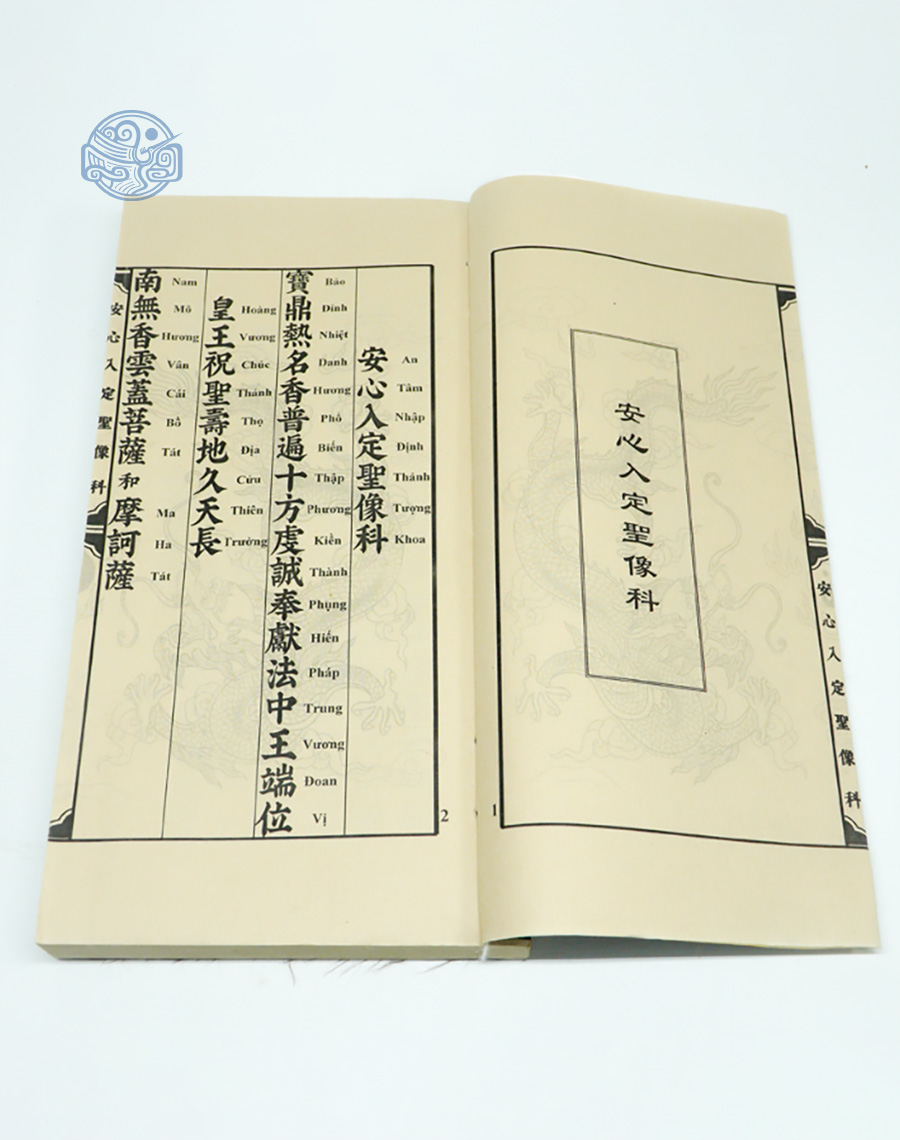 安心入定聖像科
安心入定聖像科
1
安心入定聖像科
An Tâm Nhập Định Thánh Tượng Khoa
寶鼎熱名香普遍十方虔誠奉獻法中王端位
Bảo Đỉnh Nhiệt Danh Hương Phổ Biến Thập Phương Kiền Thành Phụng Hiến Pháp Trung Vương Đoan Vị
皇王祝聖壽地久天長
Hoàng Vương Chúc Thánh Thọ Địa Cửu Thiên Trường
南無香雲蓋菩薩和摩訶薩
Nam Mô Hương Vân Cái Bồ Tát Ma Ha Tát
安心入定聖像科
2